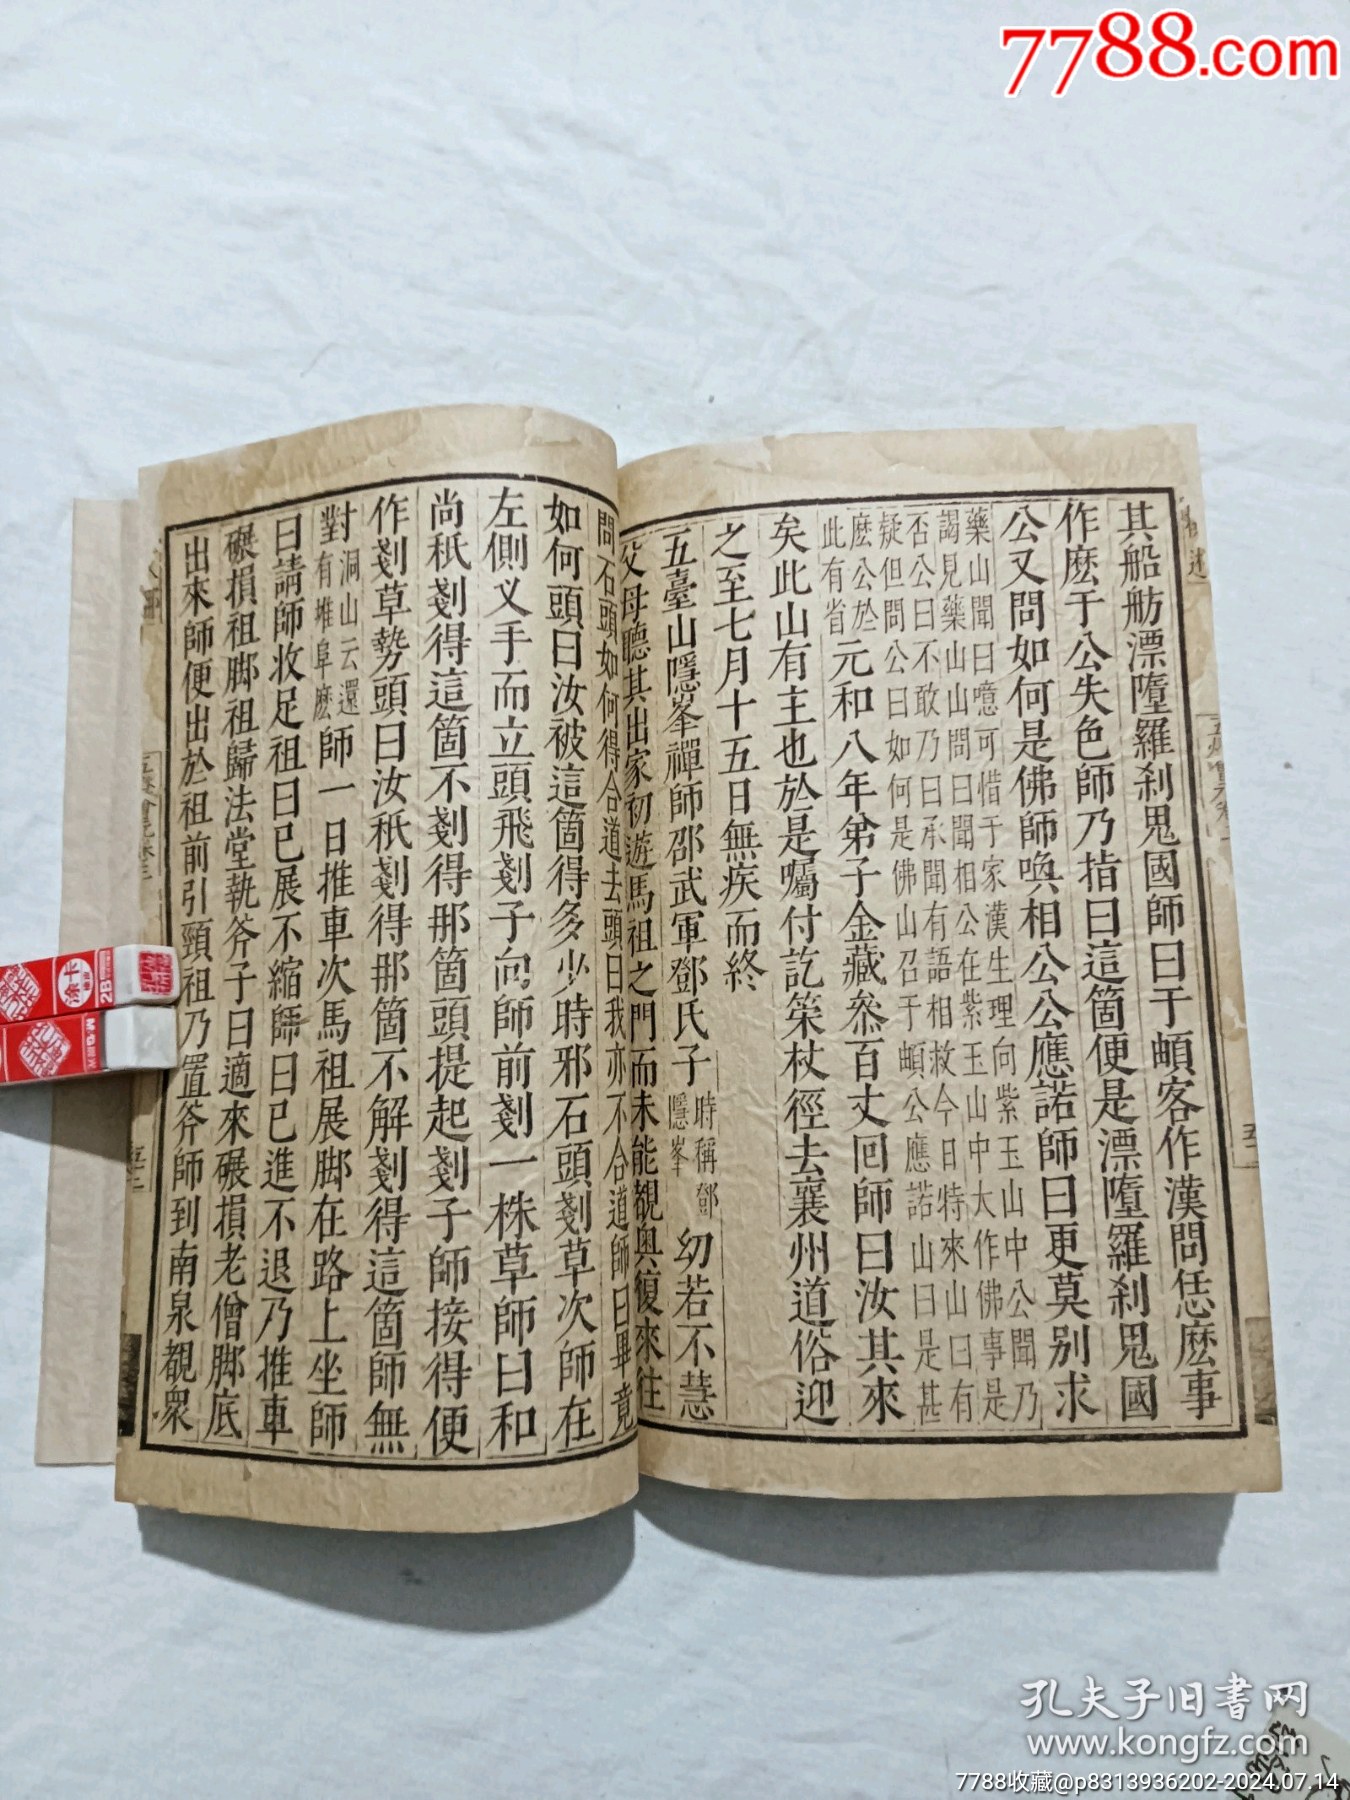 7788.com
其船舫漂墮羅剎鬼國師曰于頔客作漢問恁麼事
作麼于公失色師乃指曰這箇便是漂墮羅剎鬼國
公又問如何是佛師喚相公公應諾師曰更莫別求
藥山聞曰噫可惜于家漢生理向紫玉山中公聞乃
謁見藥山山問曰聞相公在紫玉山中大作佛事是
否公曰不敢乃曰承聞有語相救今日特來山曰有
疑但問公曰如何是佛山召于頔公應諾山曰是甚
麼公於
此有省
元和八年弟子金藏叅百丈回師曰汝其來
矣此山有主也於是囑付訖筞杖徑去襄州道俗迎
之至七月十五日無疾而終
五臺山隱峯禪師邵武軍鄧氏子
時稱鄧
隱峯
幼若不慧
父母聽其出家初遊馬祖之門而未能覩奧復來往
問石頭如何得合道去頭曰我亦不合道師曰畢竟
如何頭曰汝被這箇得多少時邪石頭剗草次師在
左側叉手而立頭飛剗子向師前剗一株草師曰和
尚秖剗得這箇不剗得那箇頭提起剗子師接得便
作剗草勢頭曰汝秖剗得那箇不解剗得這箇師無
對
洞山云還
有堆阜麼
師一日推車次馬祖展脚在路上坐師
曰請師收足祖曰已展不縮師曰已進不退乃推車
碾損祖脚祖歸法堂執斧子曰適來碾損老僧脚底
出來師便出於祖前引頸祖乃置斧師到南泉覩衆
孔夫子旧書网
www.kongfz.com
7788收藏@p8313936202-2024.07.14